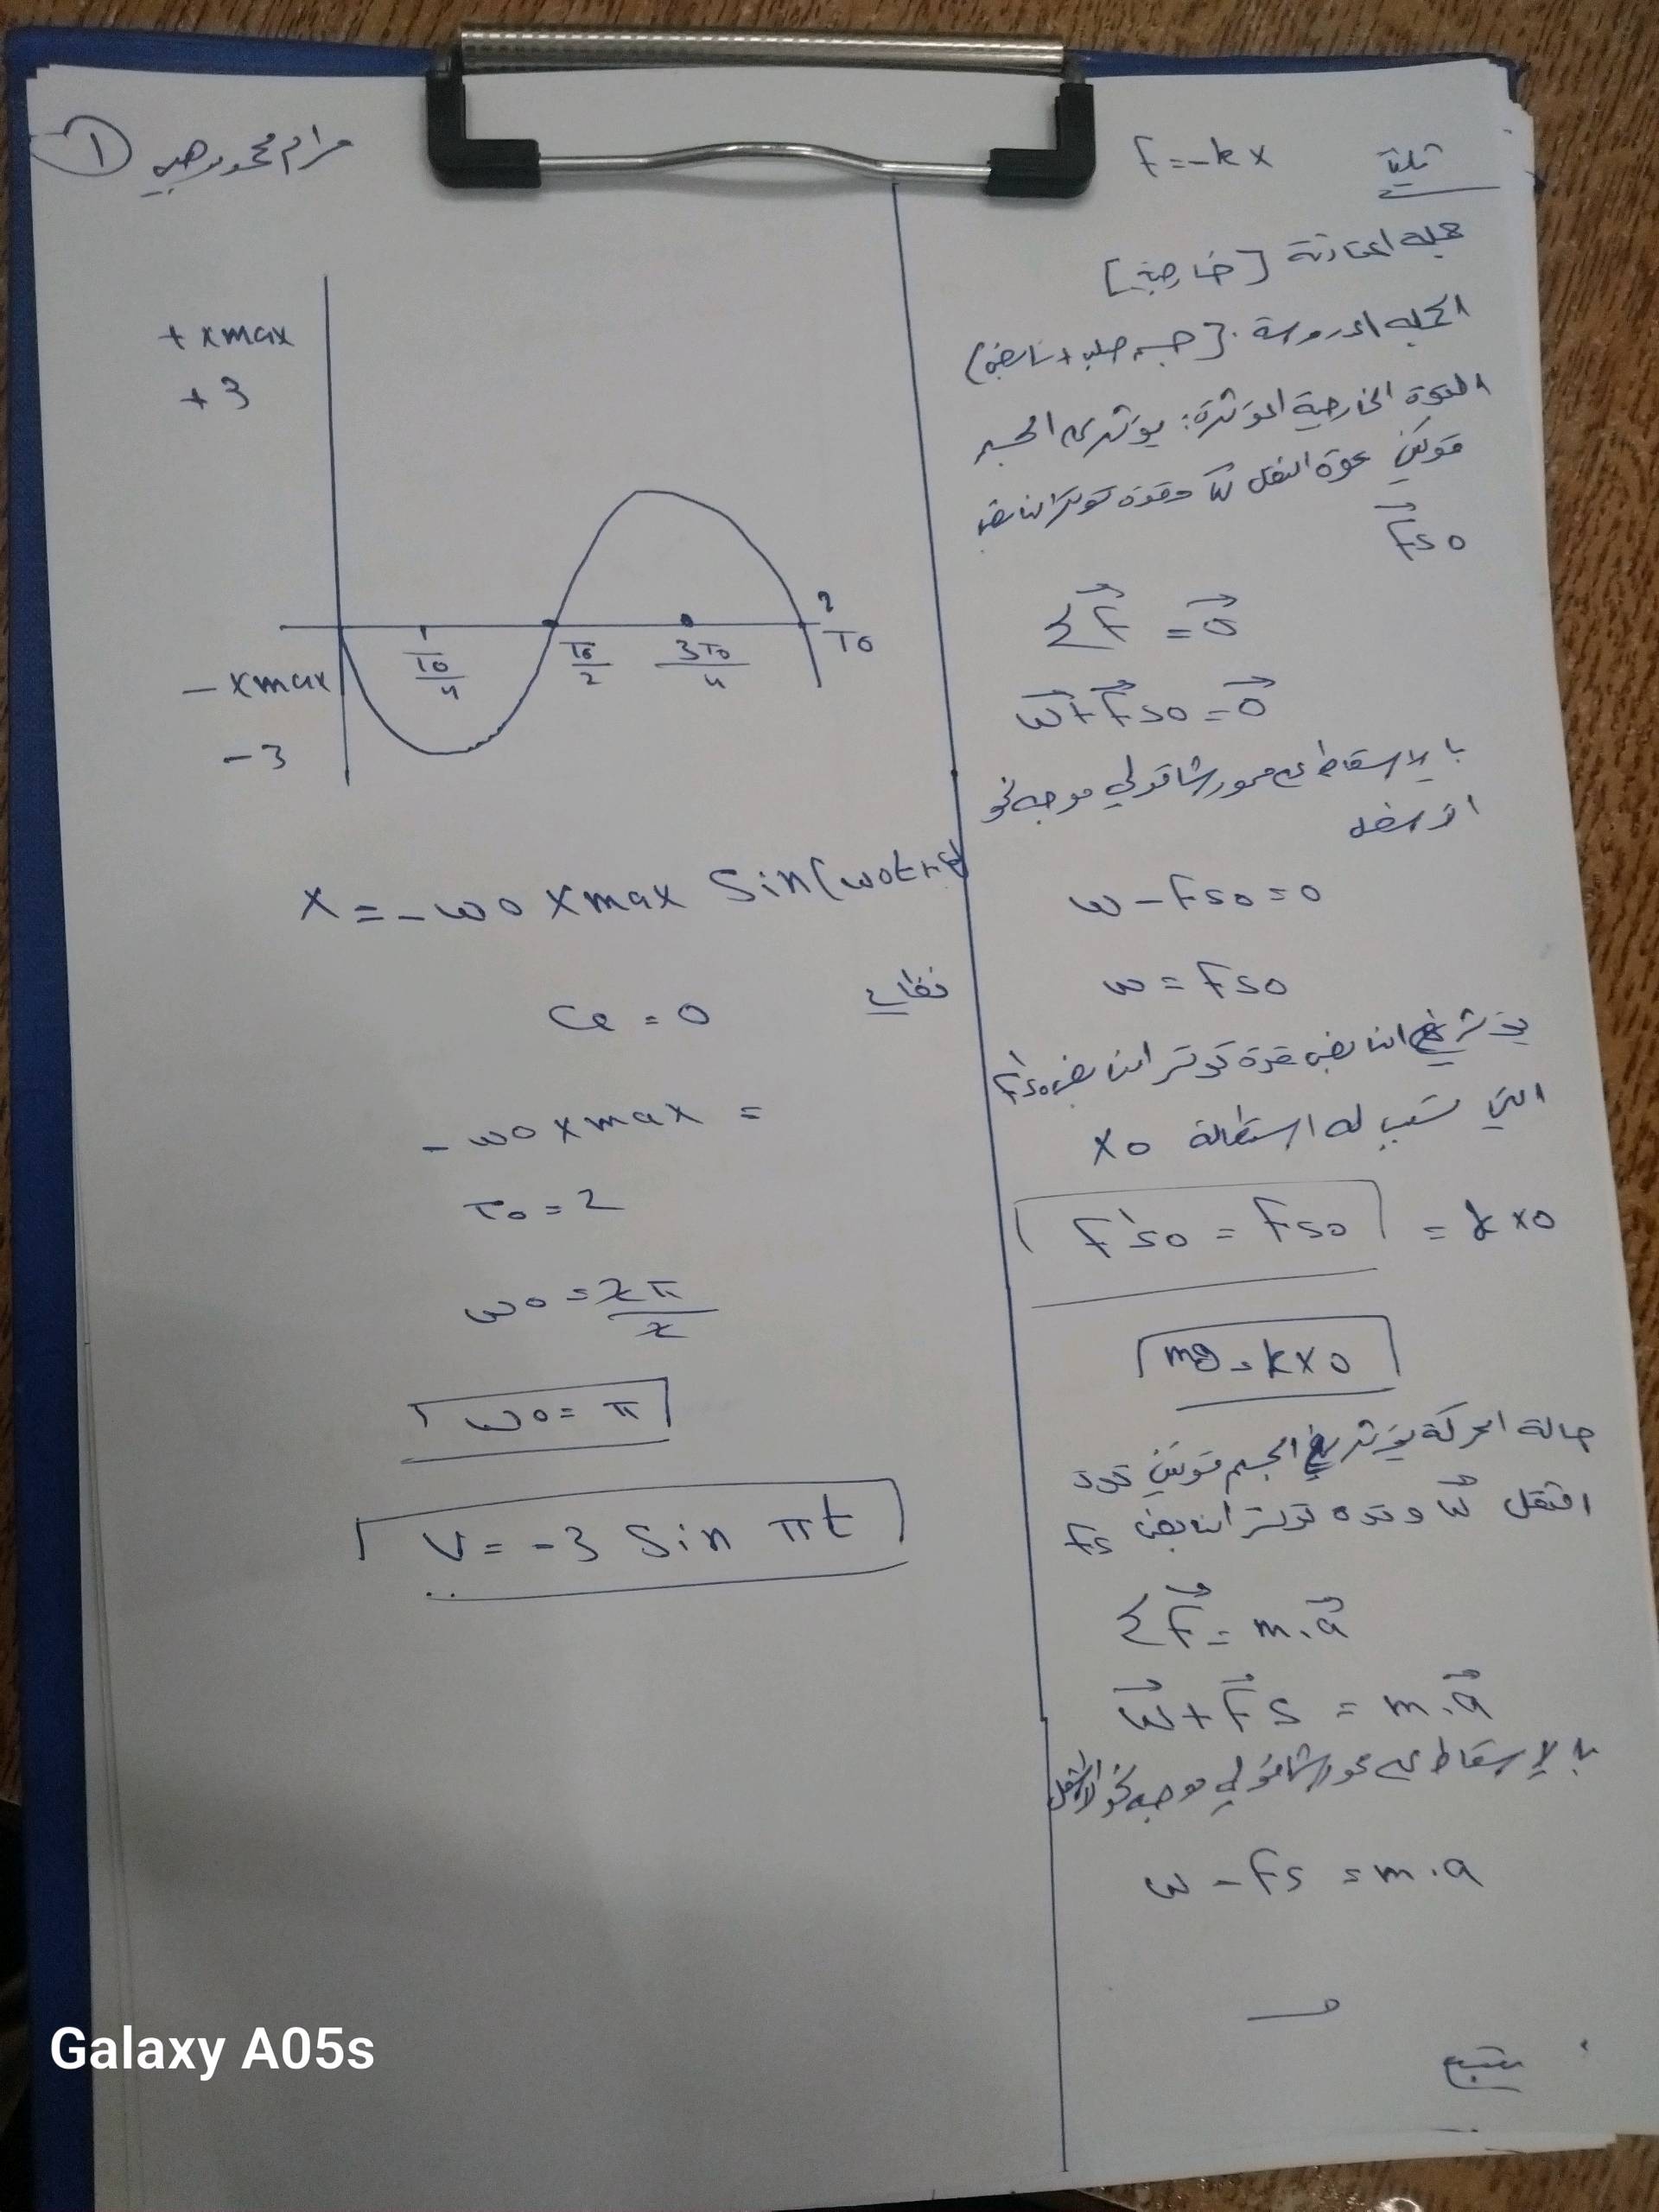 مرام محمد وهبه ①
+ xmax
+ 3
- xmax
- 3
T0/4
T0/2
3T0/4
2
T0
x = - ω0 xmax Sin(ω0t+φ)
φ = 0
- ω0 xmax =
T0 = 2
ω0 = 2π/2
ω0 = π
V = -3 Sin πt
F = -kx
جملة المقارنة [خارجية]
الجملة المدروسة: [جسم صلب + نابض]
القوة الخارجية المؤثرة: يؤثر على الجسم
قوتين قوة الثقل w وقوة توتر النابض
Fs0
ΣF = 0
w + Fs0 = 0
بالإسقاط على محور شاقولي موجه نحو
الأسفل
w - Fs0 = 0
w = Fs0
يؤثر في النابض قوة توتر النابض F's0
التي تسبب له استطالة x0
F's0 = Fs0 = kx0
mg = kx0
حالة الحركة يؤثر في الجسم قوتين قوة
الثقل w وقوة توتر النابض Fs
ΣF = m.a
w + Fs = m.a
بالإسقاط على محور شاقولي موجه نحو الأسفل
w - Fs = m.a
يتبع